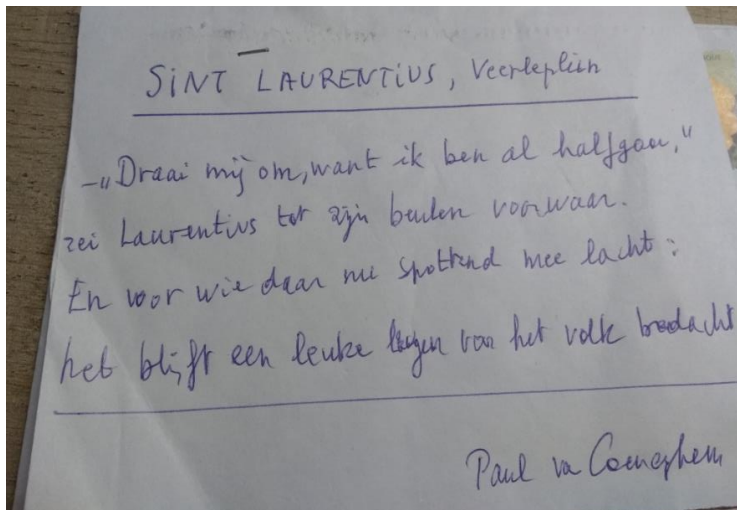 SINT LAURENTIUS, Veerleplein
—„Draai mij om, want ik ben al halfgaar,"
zei Laurentius tot zijn beulen voorwaar.
En voor wie daar nu spottend mee lacht:
het blijft een leuke leugen van het volk bedacht
Paul va